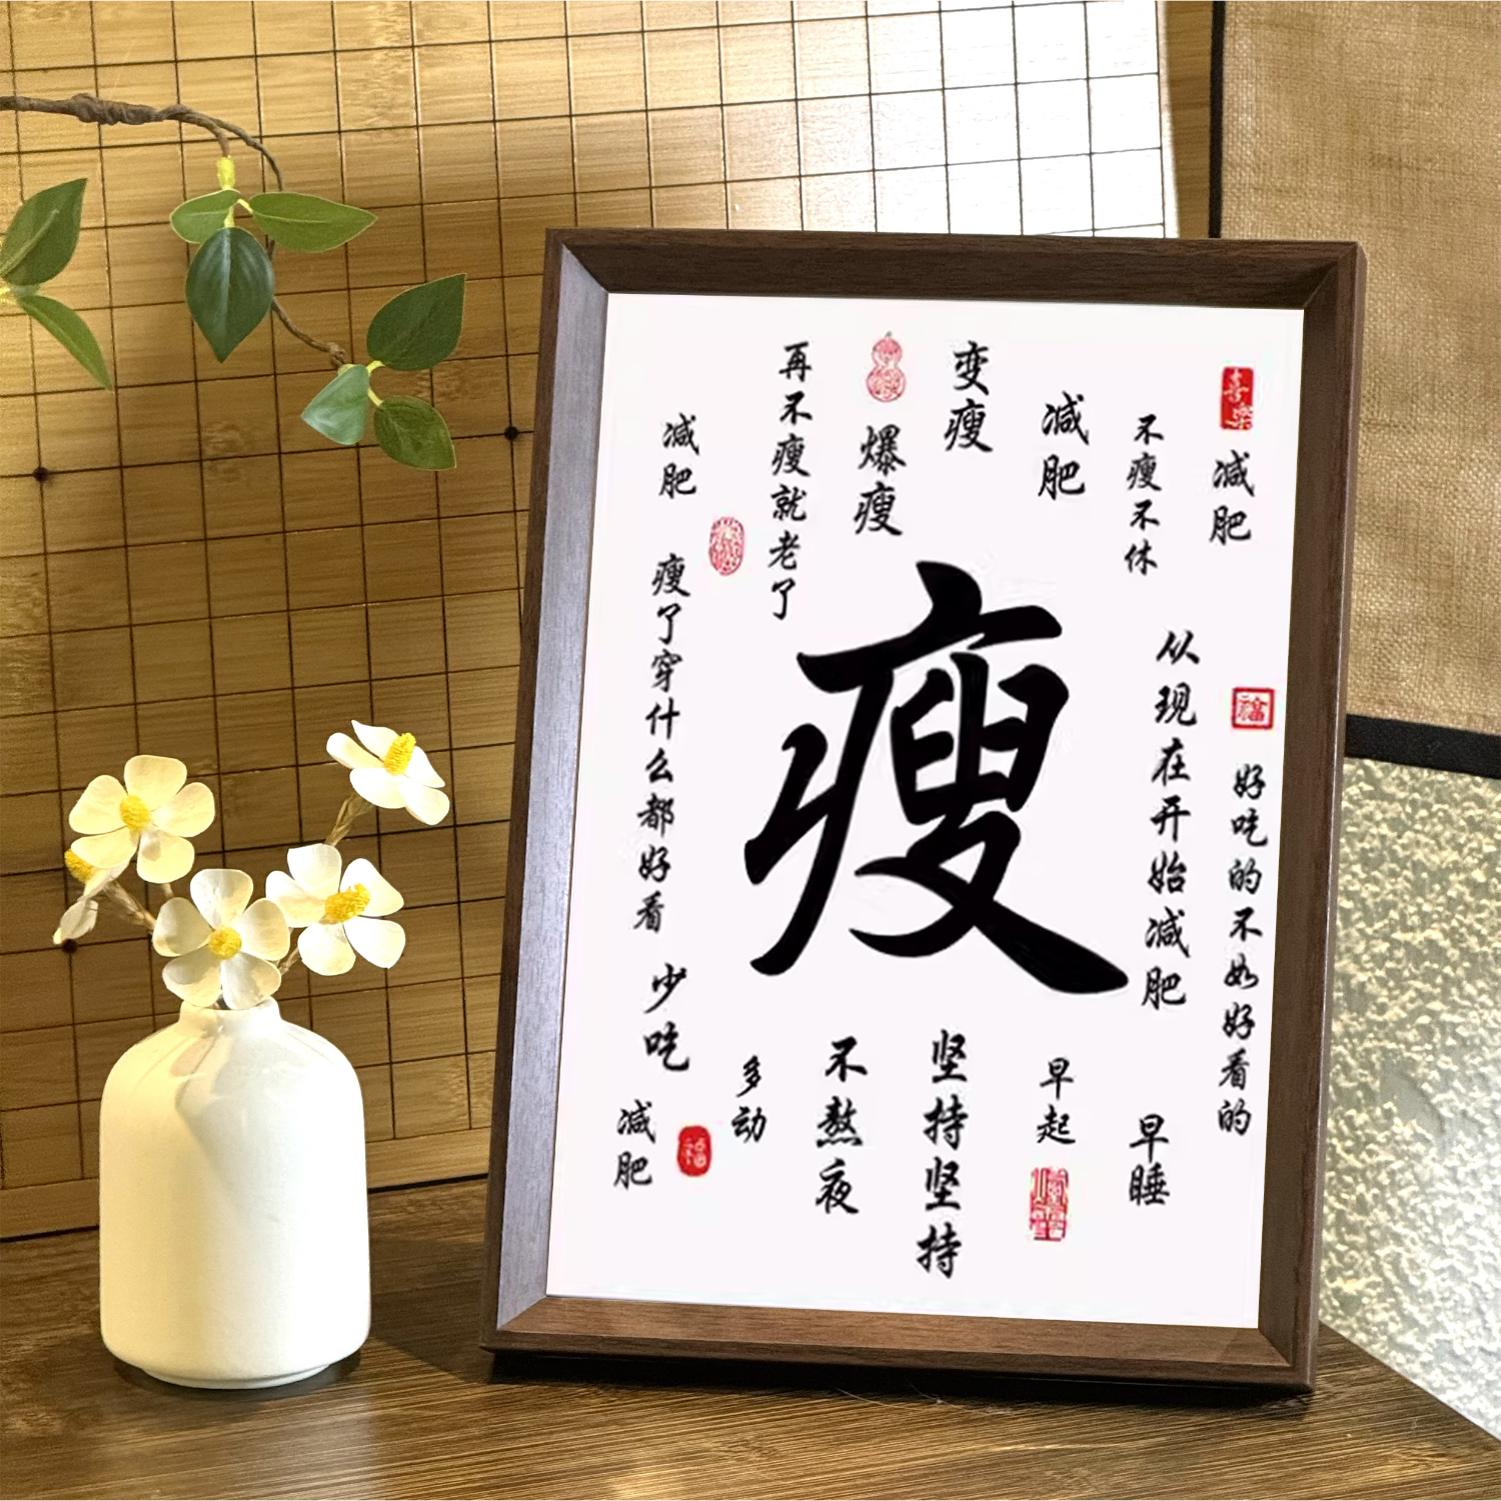 喜樂
减肥
不瘦不休
减肥
变瘦
爆瘦
再不瘦就老了
减肥
瘦
从现在开始减肥
福
好吃的不如好看的
瘦了穿什么都好看
少吃
减肥
福
多动
不熬夜
坚持坚持
早起
早睡